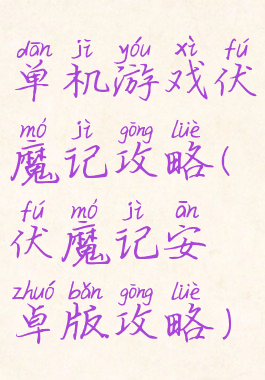 dān jī yóu xì fú
单机游戏伏
mó jì gōng lüè
魔记攻略(
fú mó jì ān
伏魔记安
zhuó bǎn gōng lüè
卓版攻略)